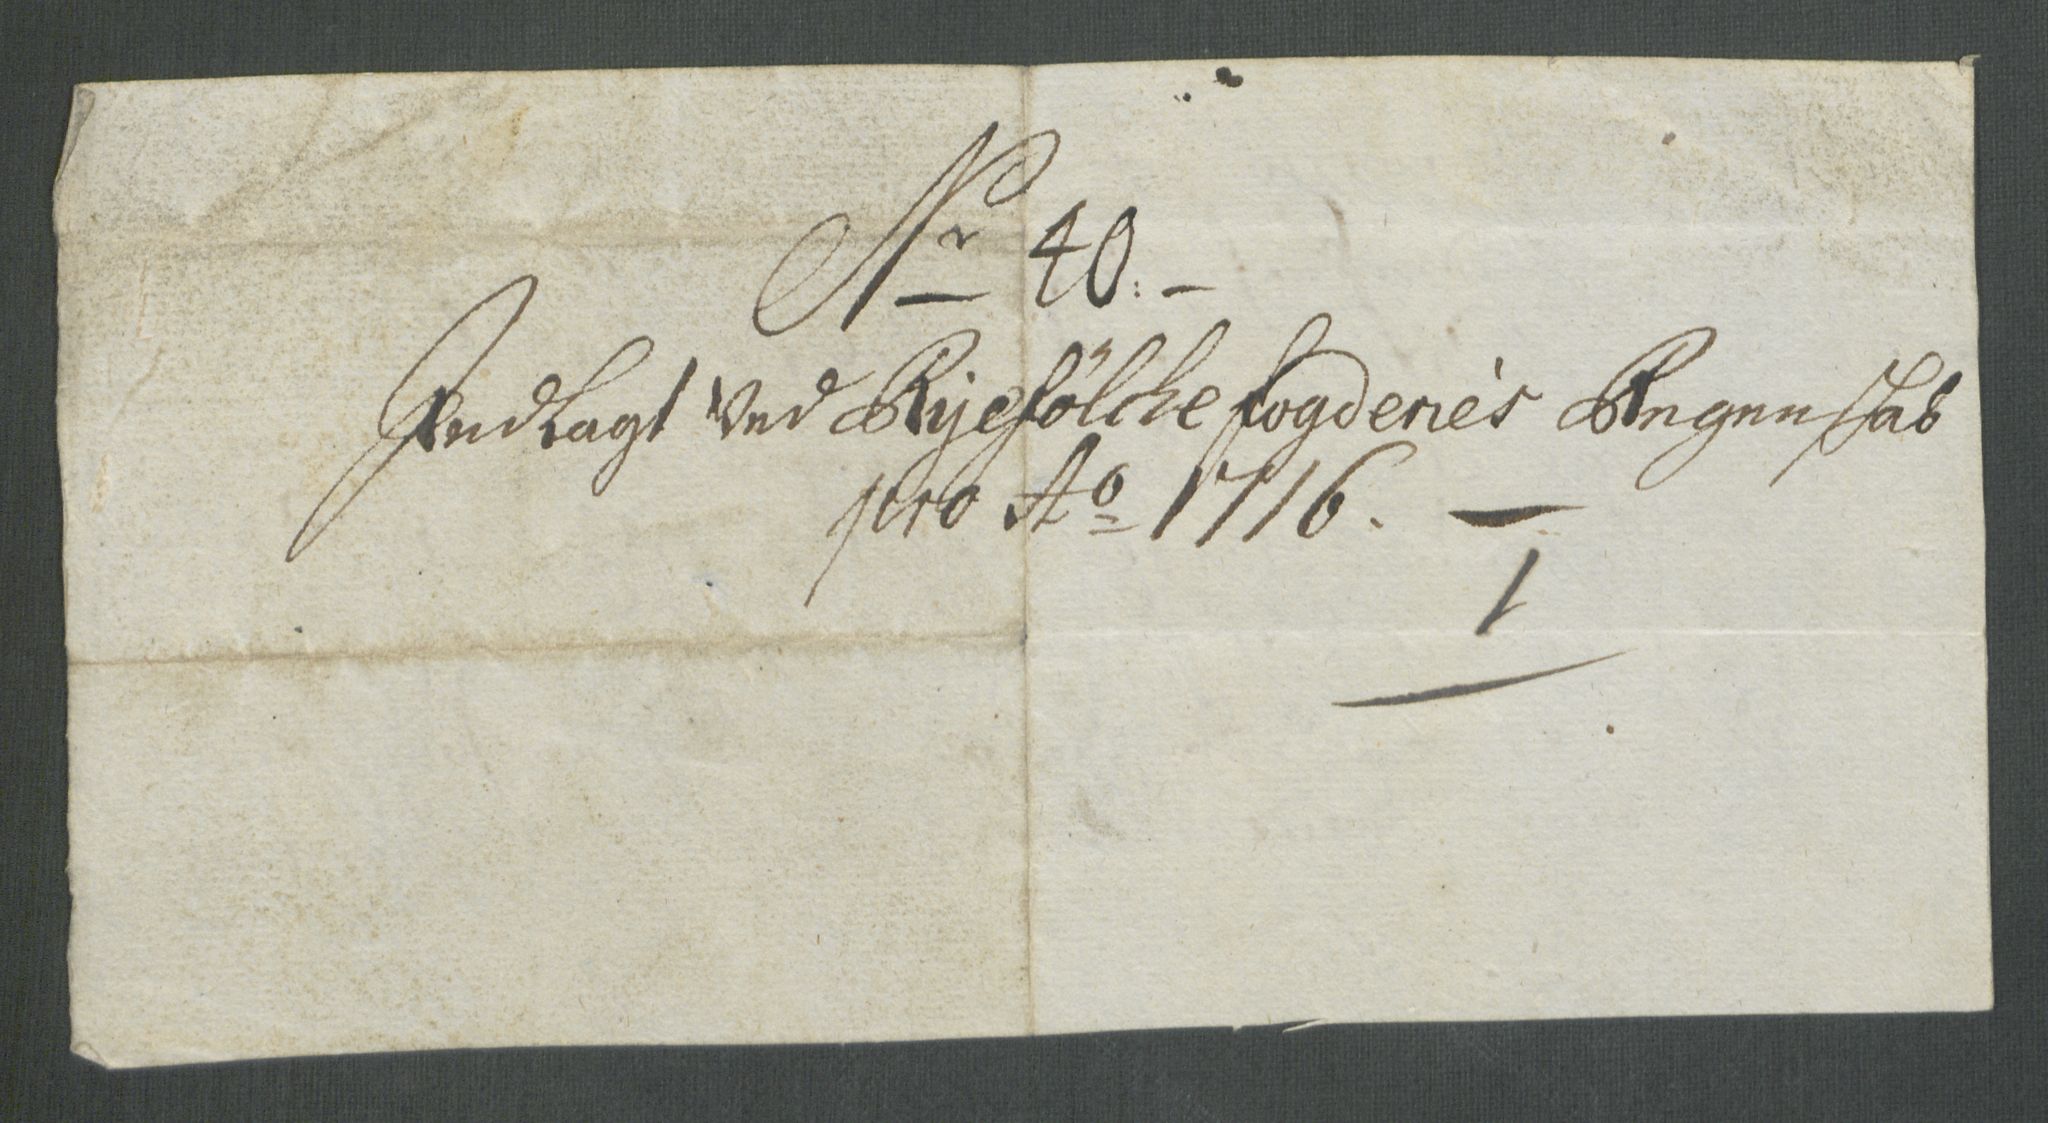 Nr 40. -
Indlagt Ved Ryefølche fogderies Regnschab
pro Ao 1716. -
1